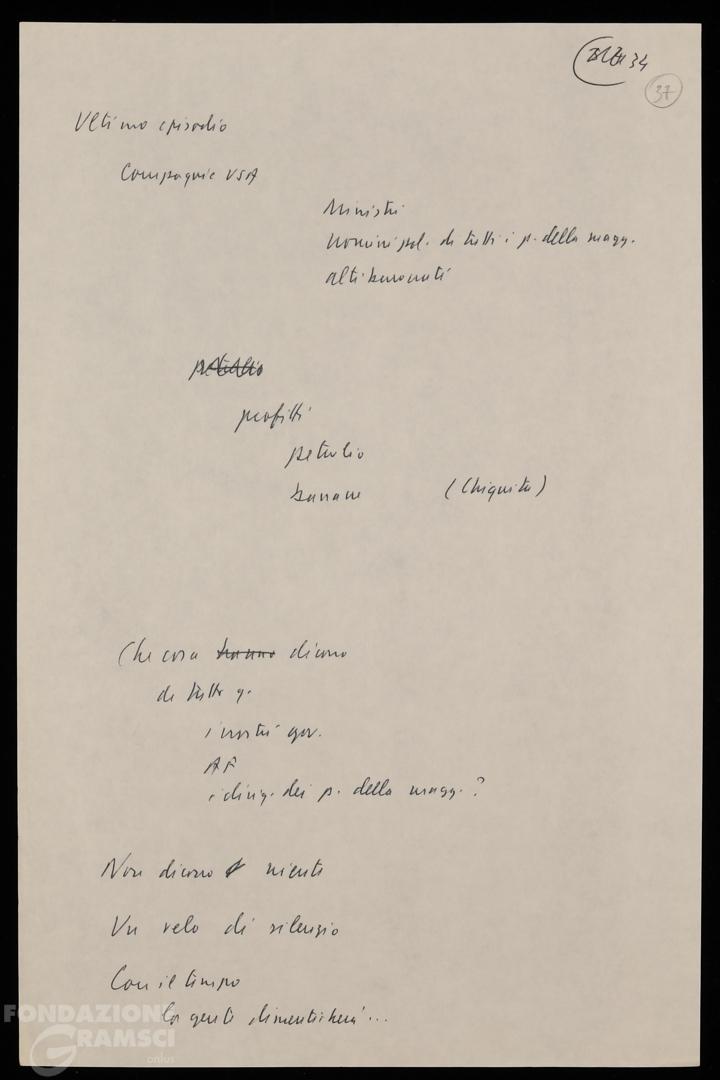 34
37
Ultimo episodio
Compagnie USA
Ministri
Uomini pol. di tutti i p. della magg.
alti burocrati
petrolio
profitti
petrolio
banane (Chiquita)
Che cosa hanno dicono
di tutto q.
i nostri gov.
AF
i dirig. dei p. della magg.?
Non dicono niente
Un velo di silenzio
Con il tempo
la gente dimenticherà...
FONDAZIONE
GRAMSCI
onlus